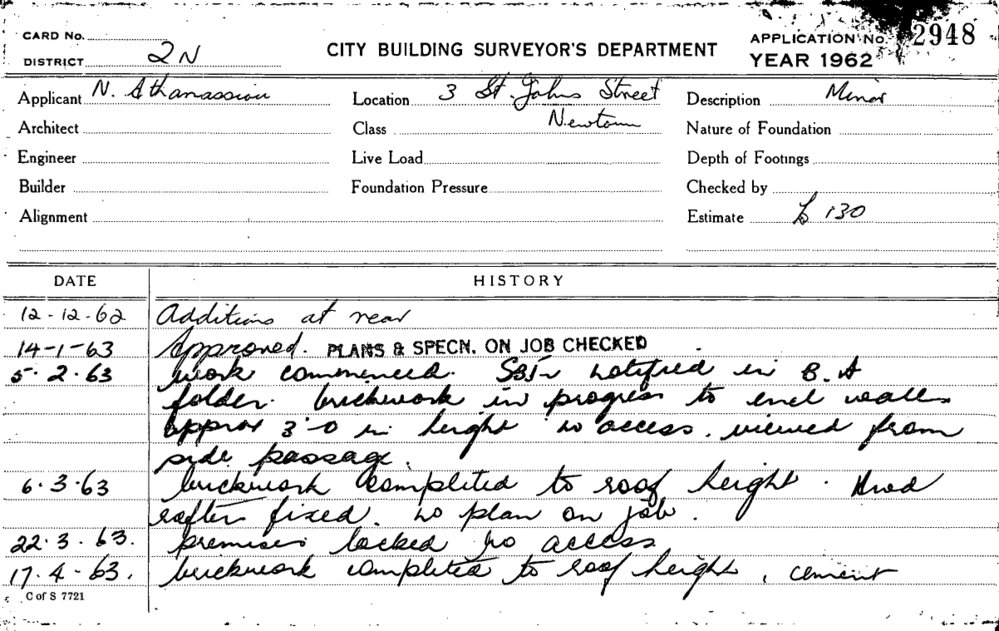 CARD No.
DISTRICT 2N
CITY BUILDING SURVEYOR'S DEPARTMENT
APPLICATION No. 2948
YEAR 1962
Applicant N. Athanassiou Location 3 St. Johns Street Description Minor
Architect Class Newtown Nature of Foundation
Engineer Live Load Depth of Footings
Builder Foundation Pressure Checked by
Alignment Estimate £ 130
DATE HISTORY
12-12-62 Additions at rear
14-1-63 Approved. PLANS & SPECN. ON JOB CHECKED
5.2.63 work commenced. notified in B.A
folder. brickwork in progress to encl walls
approx 3'-0 in height no access. viewed from
side passage.
6.3.63 brickwork completed to roof height. Hwd
rafters fixed. no plan on job.
22.3.63. premises locked no access
17.4-63. brickwork completed to roof height, cement
C of S 7721